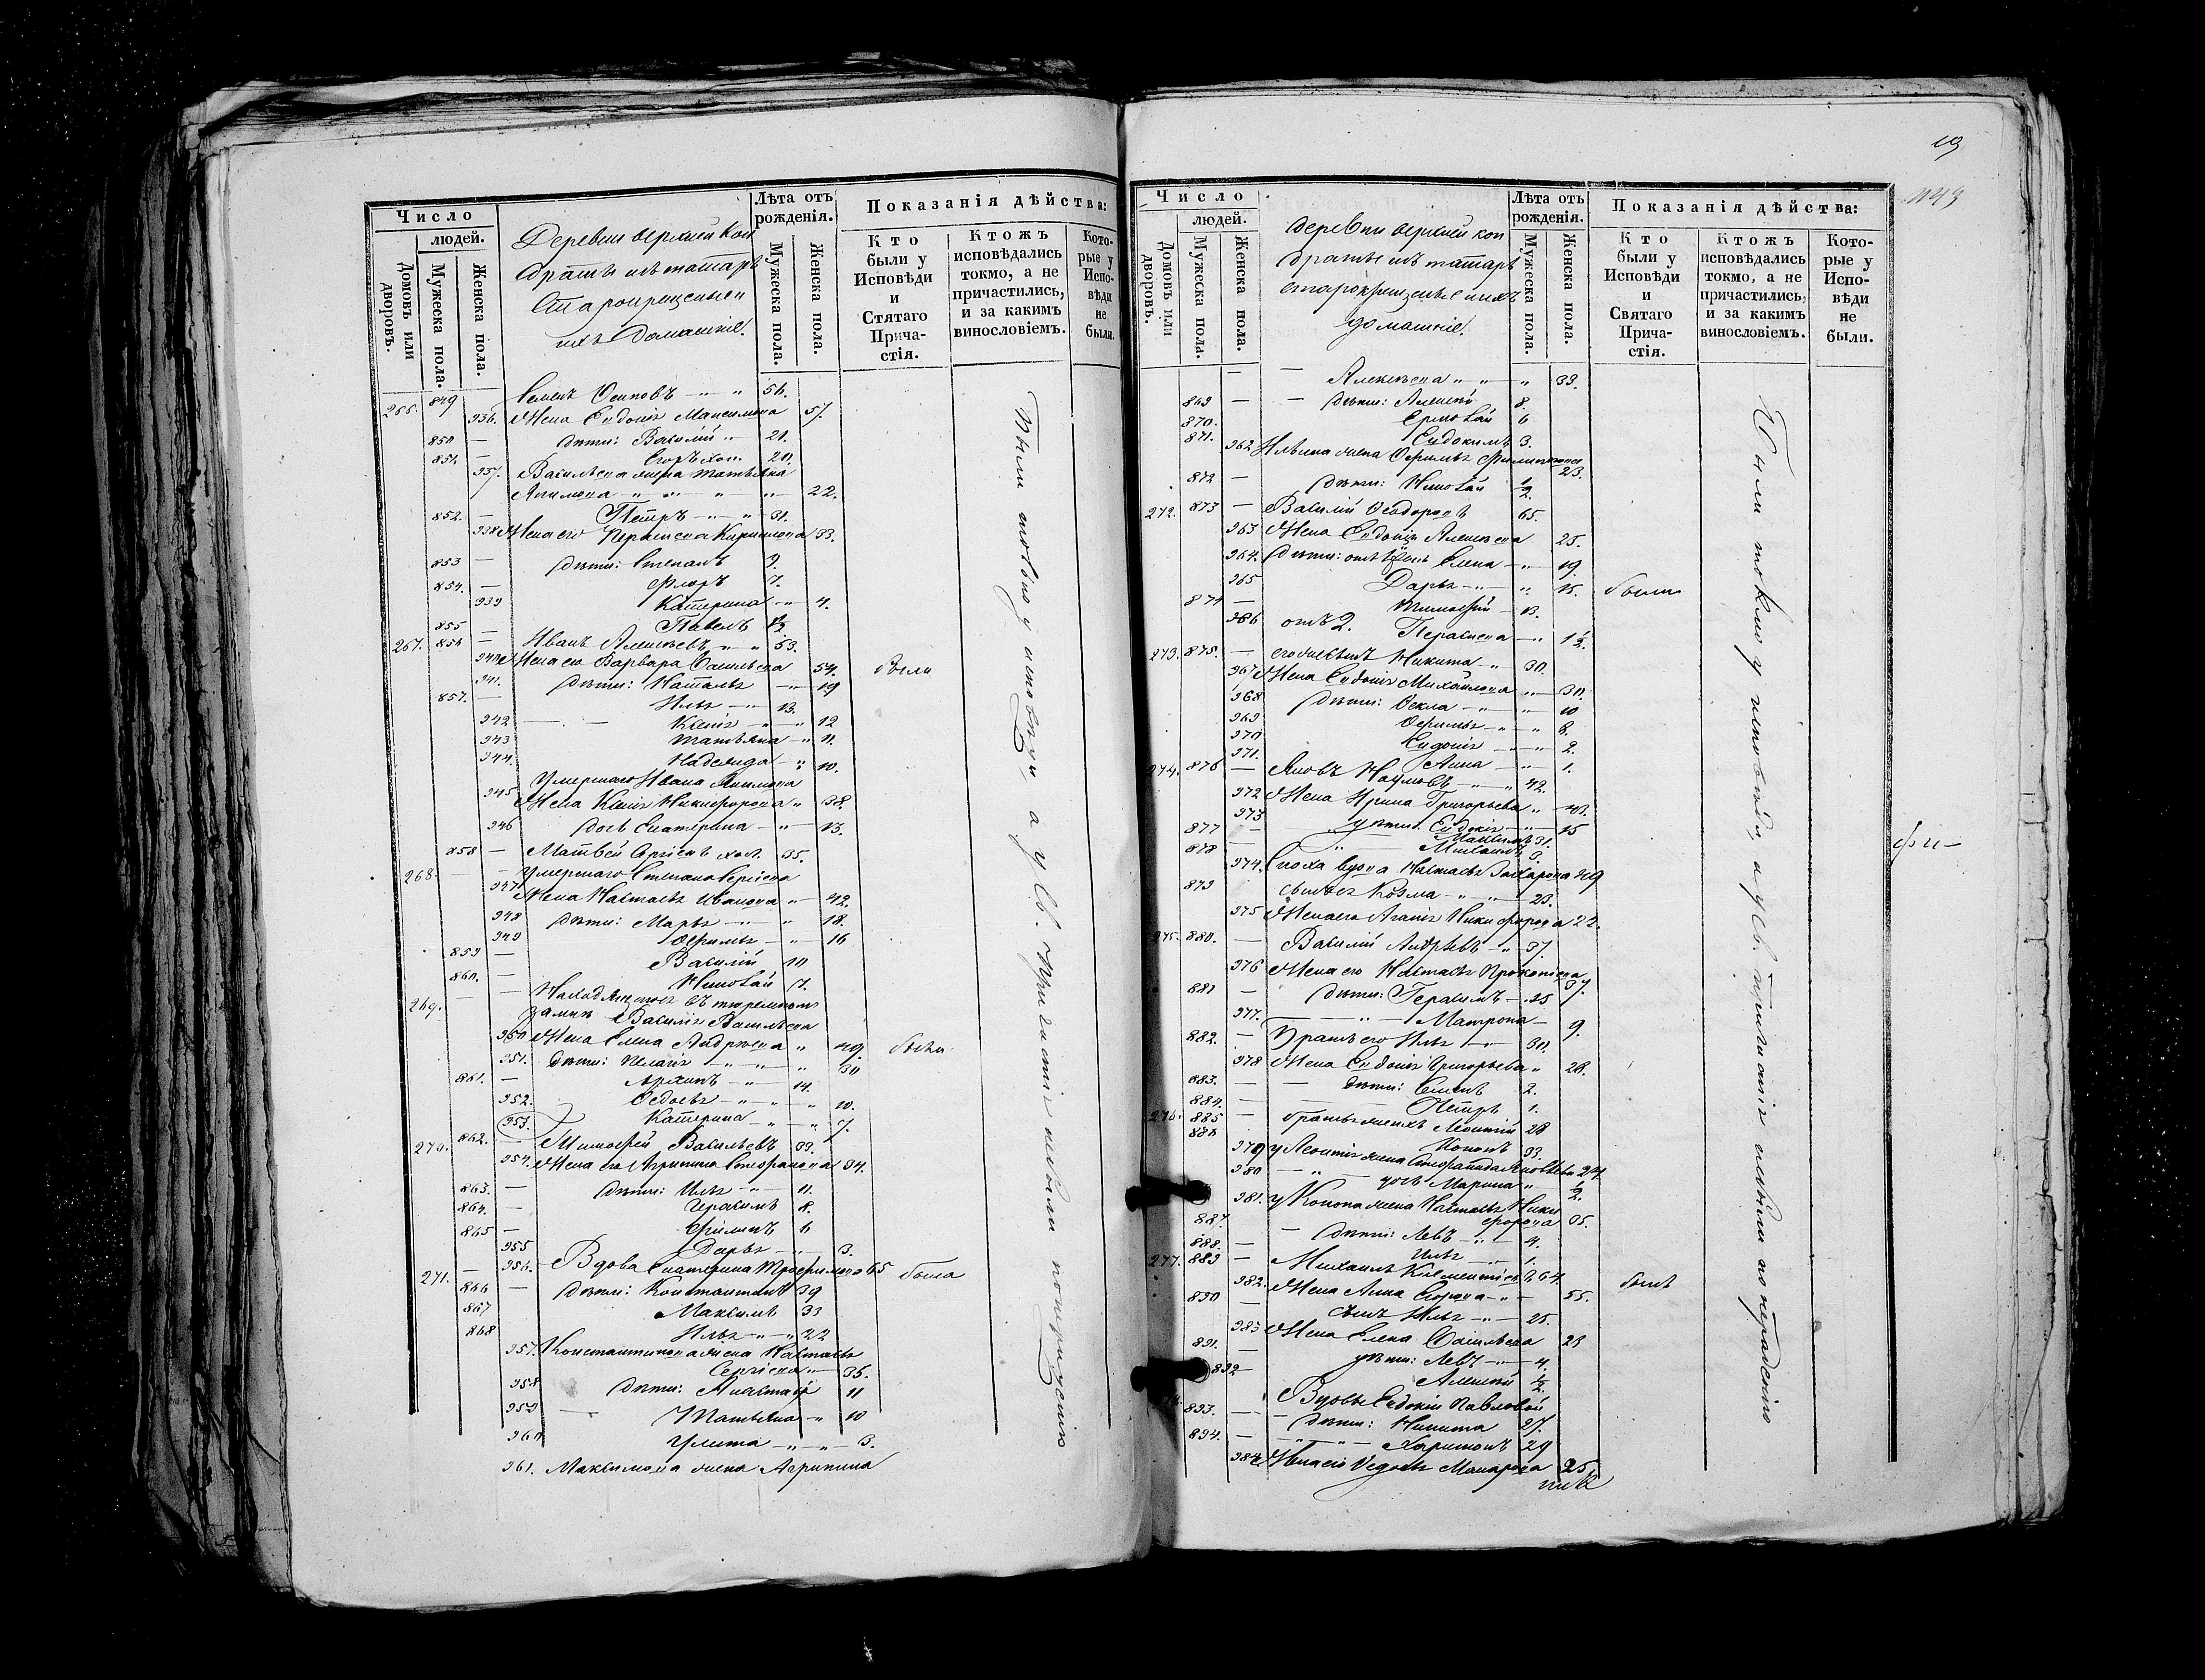 Число
людей.
Домовъ или дворовъ.
Мужеска пола.
Женска пола.
Деревни верхней Кон
драты изъ татаръ
Старокрещеныхъ
ихъ домашніе.
Лѣта отъ рожденія.
Мужеска пола.
Женска пола.
Показанія дѣйства:
Кто были у Исповѣди и Стятаго Прича- стія.
Ктожъ исповѣдались токмо, а не причастились, и за какимъ винословіемъ.
Кото- рые у Испо- вѣди не были.
849 Семенъ Осиповъ 56.
936. Жена Евдокія Максимова 57.
850 — дѣти: Василій 21.
851. — Егоръ хол. 20.
937. Васильева жена Татьяна
Акимова 22.
852. — Петръ 31.
938 Жена его Кирилова 33.
853 — дѣти: Степанъ 9.
854. — Флоръ 7.
939 Катерина 4.
855 — Павелъ
267. 856 — Иванъ Алексѣевъ 53.
940 Жена его Варвара Васильева 54. были
941. дѣти: Наталья 19
857. — Илья 13.
942 — Ксенія 12
943 Татьяна 11.
944. Надежда 10.
Умершаго Ивана Акимова
945 Жена Ксенія Никифорова 38.
946 дочь Екатерина 13.
858 — Матвей Сергіевъ хол. 35.
268. — — Умершаго Степана Сергіева
947 Жена Настасья Иванова 42.
948 дѣти: Марья 18.
949 Офимья 16
859 — Василій 10
860. — Николай 7.
269. — Находящагося въ тюремномъ
замкѣ Василія Васильева
950 Жена Елена Андреева 49. были
951. дѣти: Пелагія 30
861. — Архипъ 14.
952. Федосья 10.
953. Катерина 7.
270. 862. — Тимофей Васильевъ 39.
954. Жена его Агрипина Стефанова 34.
863. — дѣти: Илья 11.
864. — Герасимъ 8.
865 — Филипъ 6
955 Дарья 3.
271. — 956. Вдова Екатерина Трофимова 65 была
866 — дѣти: Константинъ 39
867 Максимъ 33
868 Илья 22
957. Константинова жена Настасья
Сергіева 35.
958 дѣти: Анастасія 11
959 — Татьяна 10
960 Улита 3.
961. Максимова жена Агрипина
Были токмо у исповѣди, а у св. причастія небыли по нерадѣнію
19
Число
людей.
Домовъ или дворовъ.
Мужеска пола.
Женска пола.
деревни верхней кон
драты изъ татаръ
старокрещеныхъ
домашніе.
Лѣта отъ рожденія.
Мужеска пола.
Женска пола.
Показанія дѣйства:
Кто были у Исповѣди и Святаго Прича- стія.
Ктожъ исповѣдались токмо, а не причастились, и за какимъ винословіемъ.
Кото- рые у Испо- вѣди не были.
— — Алексѣева 33.
869 — — дѣти: Алексѣй 8.
870. Ермолай 6
871. Евдокимъ 3.
962 Ильина жена Офимья Филиппова 23.
872 — дѣти: Николай 1/2
272. 873 — Василій Федоровъ 65.
963 Жена Евдокія Алексѣева 25.
964. дѣти: отъ Елена 19.
965 Дарья 15. были
874 — Тимофей 13.
966 отъ 2. Парасковья 1 1/2
273. 875. — его Никита 30.
967 Жена Евдокія Михайлова 30.
968 дѣти: Фекла 10
969 Офимья 8.
970 Евдокія 2.
971. Анна 1.
274. 876 — Яковъ Наумовъ 42.
972 Жена Ирина Григорьева 40.
973 дѣти: Евдокія 15
877 — Максимъ
878 Михаилъ 9.
974. Сноха вдова Настасья Захарова 49
879 Козма 23.
975 Жена его Агапія Никифорова 22.
275. 880. — Василій Андрѣевъ 37.
976 Жена его Настасья Прокопіева 37.
881 — дѣти: Герасимъ 15
977. — Матрона 9.
882. — Братъ его Илья 30.
978 Жена Евдокія Григорьева 28.
883. — — дѣти: Семенъ 2.
884. Петръ 1.
276. 885 — братья Леонтій 28
886 Кононъ 33.
979 у Леонтія жена Степанида Яковлева 24
980 дочь Марина 1/2
981. у Конона жена Настасья Ники
форова 35.
887. — дѣти: Левъ 4.
888. — Илья 1.
277. 889 — Михаилъ Климентіевъ 64. были
982. Жена Анна Егорова 55.
890 — сынъ Илья 25.
983 Жена Елена Васильева 23
891. — дѣти: Левъ 4.
892 — Алексѣй 1/2
Вдовы Евдокіи Павловой
893. — — дѣти: Никита 27.
894. — Харитонъ 29
984 Жена его Федосья Макарова 25
Были токмо у исповѣди, а у св. причастія небыли по нерадѣнію